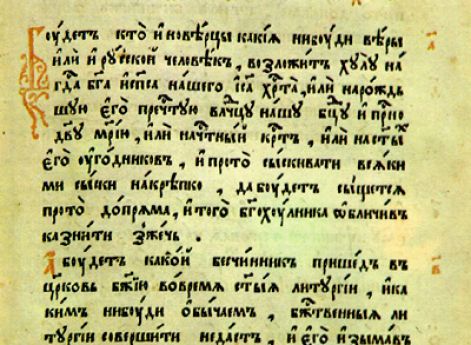 Боудетъ кто̀ и҆новѣрцы какїѧ нибоуди вѣры
и҆лѝ и҆роусской человѣкъ, возложитъ хоулоу на
гдⷭ҇а бг҃а и҆сп҃са нашего і҆с҃а хрⷭ҇та̀, и҆лѝ нарождь
шоую е҆го̀ пречⷭ҇тоую влⷣчцоу нашоу бцⷣоу и҆ прⷭ҇но
дв҃оу мр҃їю, и҆лѝ начⷭ҇тныи крⷭ҇тъ, и҆лѝ на ст҃ыⷯ
е҆го̀ оугодниковъ, и҆ прото̀ сыскивати всѧки
ми сыски накрѣпко, да боудетъ сыщетсѧ
прото̀ допрѧма, и҆ того̀ бг҃охоулника ѡ҆бличивъ
казнити зжечь.
А боудетъ како́й бесчинникъ пришедъ въ
црⷪ҇ковь бж҃їю вовремѧ ст҃ыѧ литоургїи, и҆ка
кимъ нибоуди ѻ҆бычаемъ, бжⷭ҇твенныѧ ли
тоургїи совершити недастъ, и҆ е҆го̀ и҆зымавъ
а҃
в҃